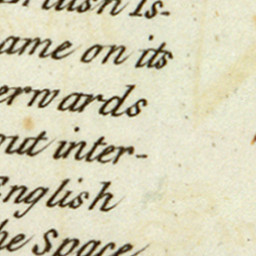 British Is-
ame on its
erwards
out inter-
English
he Space